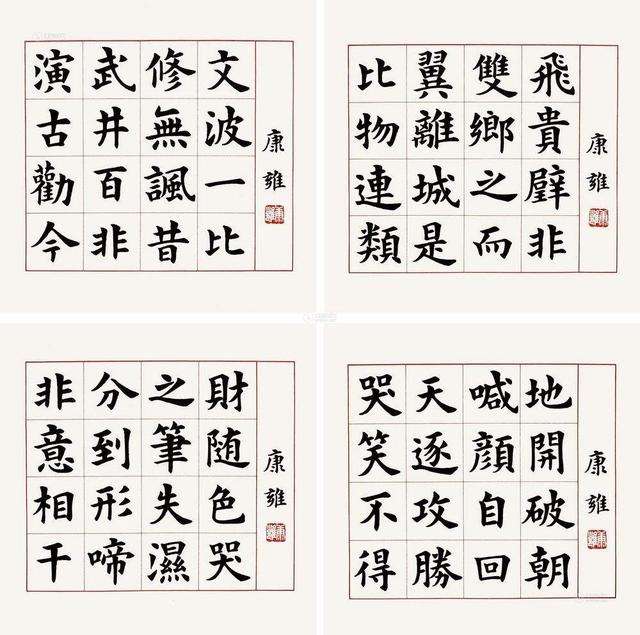 演武修文
古井無波
勸百諷一
今非昔比
康雍
比翼雙飛
物離鄉貴
連城之璧
類是而非
康雍
非分之財
意到筆随
相形失色
干啼濕哭
康雍
哭天喊地
笑逐顔開
不攻自破
得勝回朝
康雍